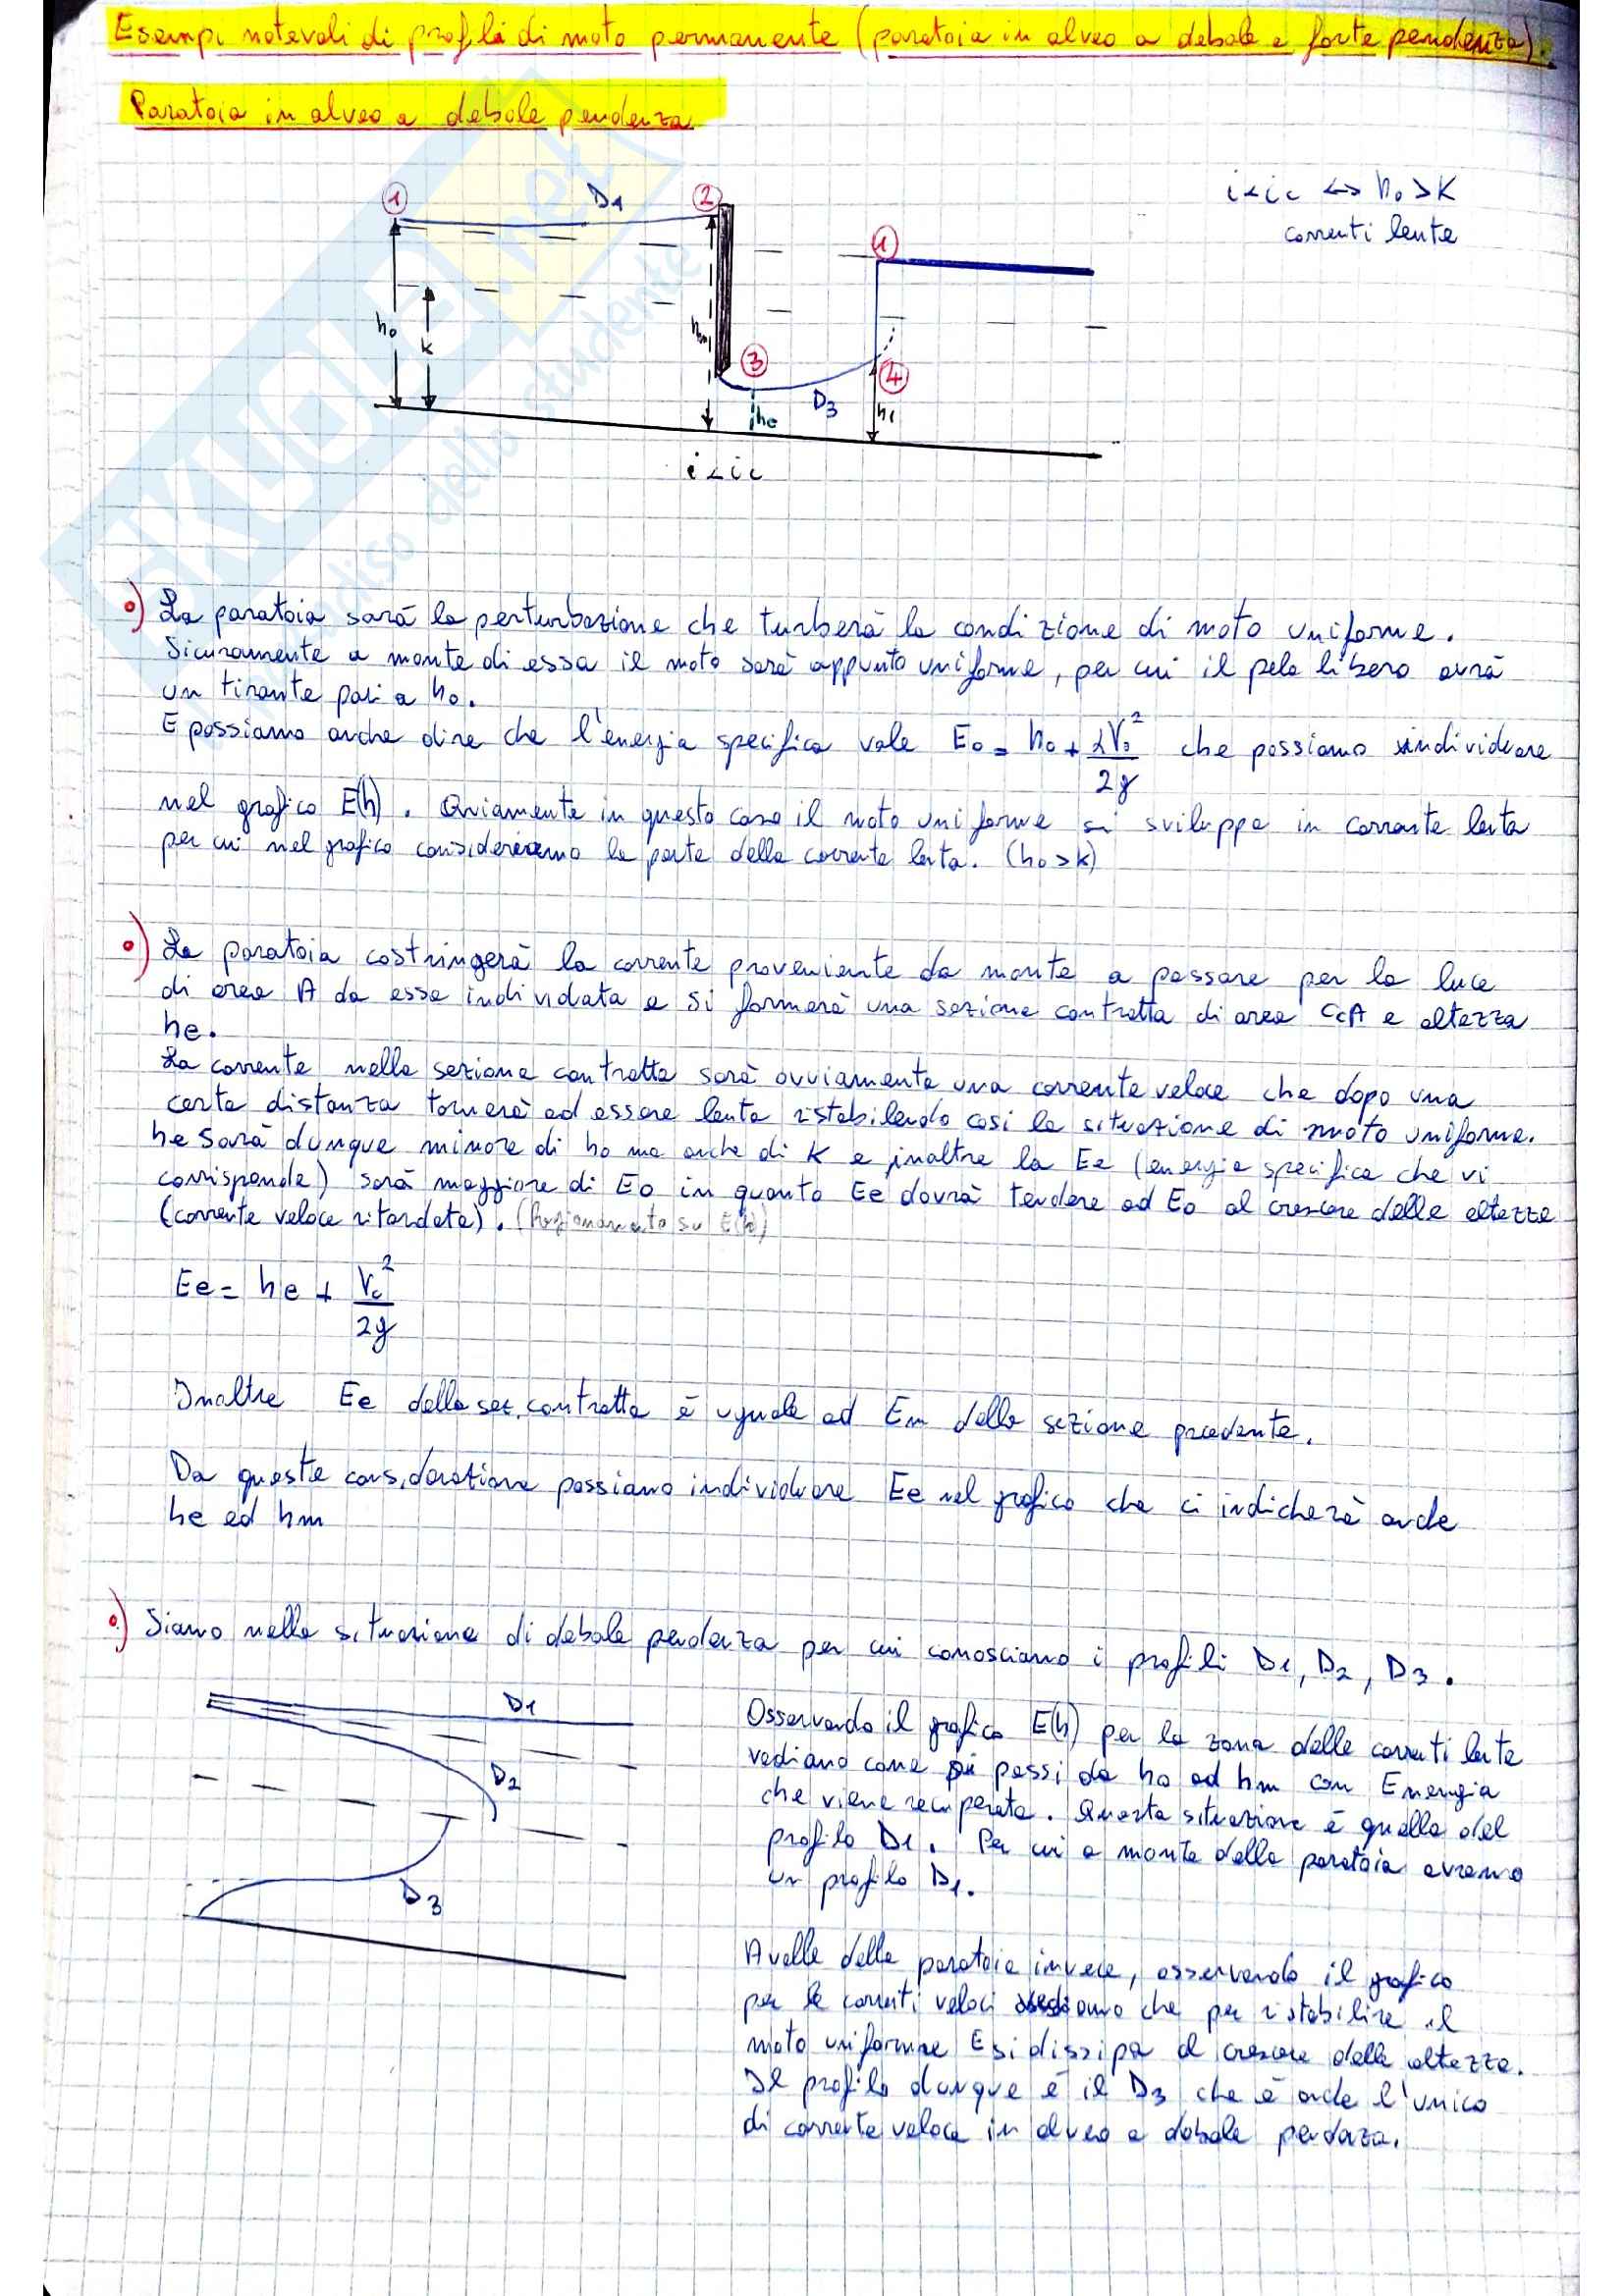 Esempi notevoli di profili di moto permanente (paratoia in alveo a debole e forte pendenza).
Paratoia in alveo a debole pendenza
i<ic <-> ho>K
correnti lente
1
D1
2
1
ho
K
hm
3
4
D3
he
h1
i<ic
•) La paratoia sarà la perturbazione che turberà la condizione di moto uniforme.
Sicuramente a monte di essa il moto sarà appunto uniforme, per cui il pelo libero avrà
un tirante pari a ho.
E possiamo anche dire che l'energia specifica vale Eo = ho + αVo²/2g che possiamo individuare
nel grafico E(h). Ovviamente in questo caso il moto uniforme si sviluppa in corrente lenta
per cui nel grafico considereremo la parte della corrente lenta. (ho>K)
•) La paratoia costringerà la corrente proveniente da monte a passare per la luce
di area A da essa individata e si formerà una sezione contratta di area CcA e altezza
he.
La corrente nella sezione contratta sarà ovviamente una corrente veloce che dopo una
certa distanza tornerà ad essere lenta ristabilendo così la situazione di moto uniforme.
he sarà dunque minore di ho ma anche di K e inoltre la Ee (energia specifica che vi
corrisponde) sarà maggiore di Eo in quanto Ee dovrà tendere ad Eo al crescere delle altezze
(corrente veloce ritardata). (Ragionamento su E(h))
Ee = he + Vc²/2g
Inoltre Ee della sez. contratta è uguale ad Em della sezione precedente.
Da queste considerazione possiamo individuare Ee nel grafico che ci indicherà anche
he ed hm
•) Siamo nella situazione di debole pendenza per cui conosciamo i profili D1, D2, D3.
D1
D2
D3
Osservando il grafico E(h) per la zona delle correnti lente
vediamo come si passi da ho ad hm con Energia
che viene recuperata. Questa situazione è quella del
profilo D1. Per cui a monte della paratoia avremo
un profilo D1.
A valle della paratoia invece, osservando il grafico
per le correnti veloci vediamo che per ristabilire il
moto uniforme E si dissipa al crescere delle altezze.
Il profilo dunque è il D3 che è anche l'unico
di corrente veloce in alveo a debole pendenza.